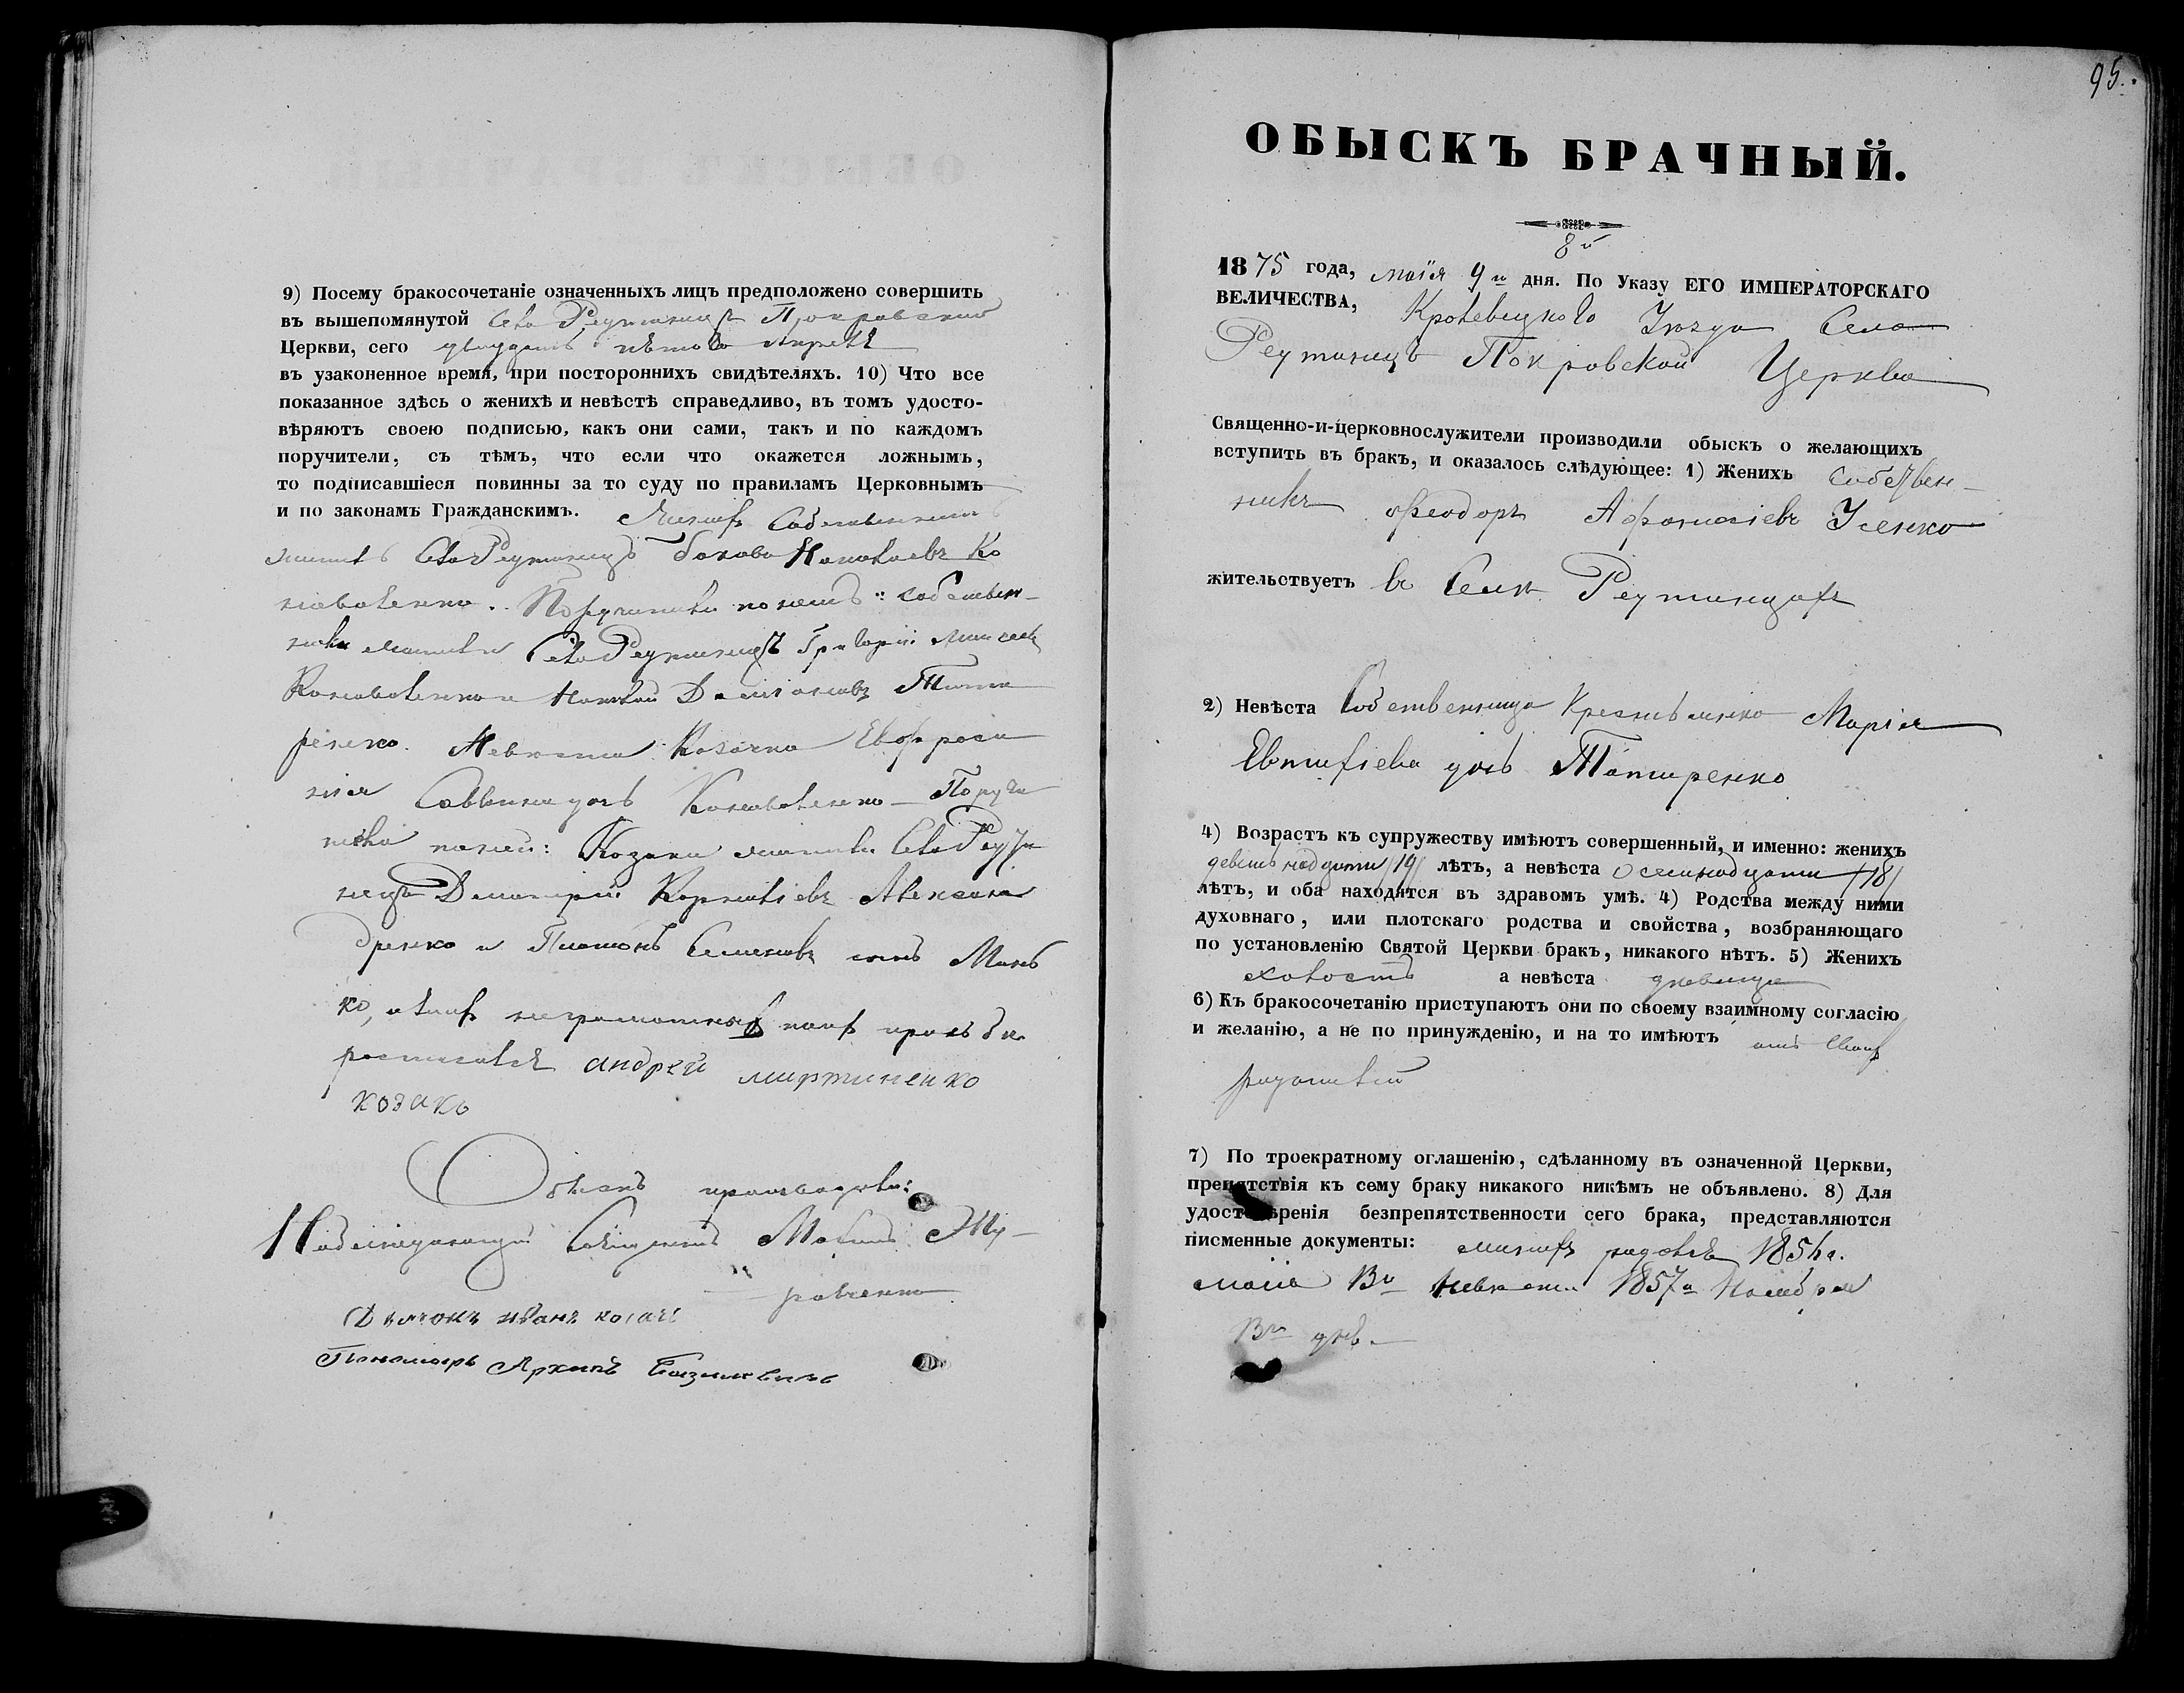 9) Посему бракосочетаніе означенныхъ лицъ предположено совершить
въ вышепомянутой Села Реутинецъ Покровской
Церкви, сего двадцать пятого Апреля
въ узаконенное время, при постороннихъ свидѣтеляхъ. 10) Что все
показанное здѣсь о женихѣ и невѣстѣ справедливо, въ томъ удосто-
вѣряютъ своею подписью, какъ они сами, такъ и по каждомъ
поручители, съ тѣмъ, что если что окажется ложнымъ,
то подписавшіеся повинны за то суду по правиламъ Церковнымъ
и по законамъ Гражданскимъ. Женихъ Собственникъ
Села Реутинецъ Ко
новаленко. Поручители по немъ: собствен-
ники жители Села Реутинецъ Григорій
Коноваленко и Даміановъ Тата
ренко. Невеста Козачка Евфроси
нія Саввина дочь Коноваленко Поручи
тели по ней: Козаки жители Села Реути
нецъ Димитрій Корниліевъ Алексан
дренко и Платонъ Семеновъ сынъ Мань
ко, а вмѣсто неграмотныхъ по ихъ прозьбѣ
росписался андрей мартиненко
козакъ
Обыскъ производили:
Священникъ
Дьячокъ иванъ косачъ
Пономарь Архипъ
95.
ОБЫСКЪ БРАЧНЫЙ.
8й
1875 года, маія 9го дня. По Указу ЕГО ИМПЕРАТОРСКАГО
ВЕЛИЧЕСТВА, Кролевецкого Уезда Села
Реутинецъ Покровской Церкви
Священно-и-церковнослужители производили обыскъ о желающихъ
вступить въ бракъ, и оказалось слѣдующее: 1) Женихъ собствен-
никъ Феодоръ Афанасіевъ Усенко
жительствуетъ въ Селѣ Реутинцахъ
2) Невѣста Собственница Крестьянка Марія
Евтифіева дочь Татаренко
4) Возрастъ къ супружеству имѣютъ совершенный, и именно: женихъ
девятнадцати /19/ лѣтъ, а невѣста осемнадцати /18/
лѣтъ, и оба находятся въ здравомъ умѣ. 4) Родства между ними
духовнаго, или плотскаго родства и свойства, возбраняющаго
по установленію Святой Церкви бракъ, никакого нѣтъ. 5) Женихъ
холостъ а невѣста девица
6) Къ бракосочетанію приступаютъ они по своему взаимному согласію
и желанію, а не по принужденію, и на то имѣютъ отъ своихъ
родителей
7) По троекратному оглашенію, сдѣланному въ означенной Церкви,
препятствія къ сему браку никакого никѣмъ не объявлено. 8) Для
удостовѣренія безпрепятственности сего брака, представляются
писменные документы: женихъ родился
маія невеста 1857го Ноября
дня.